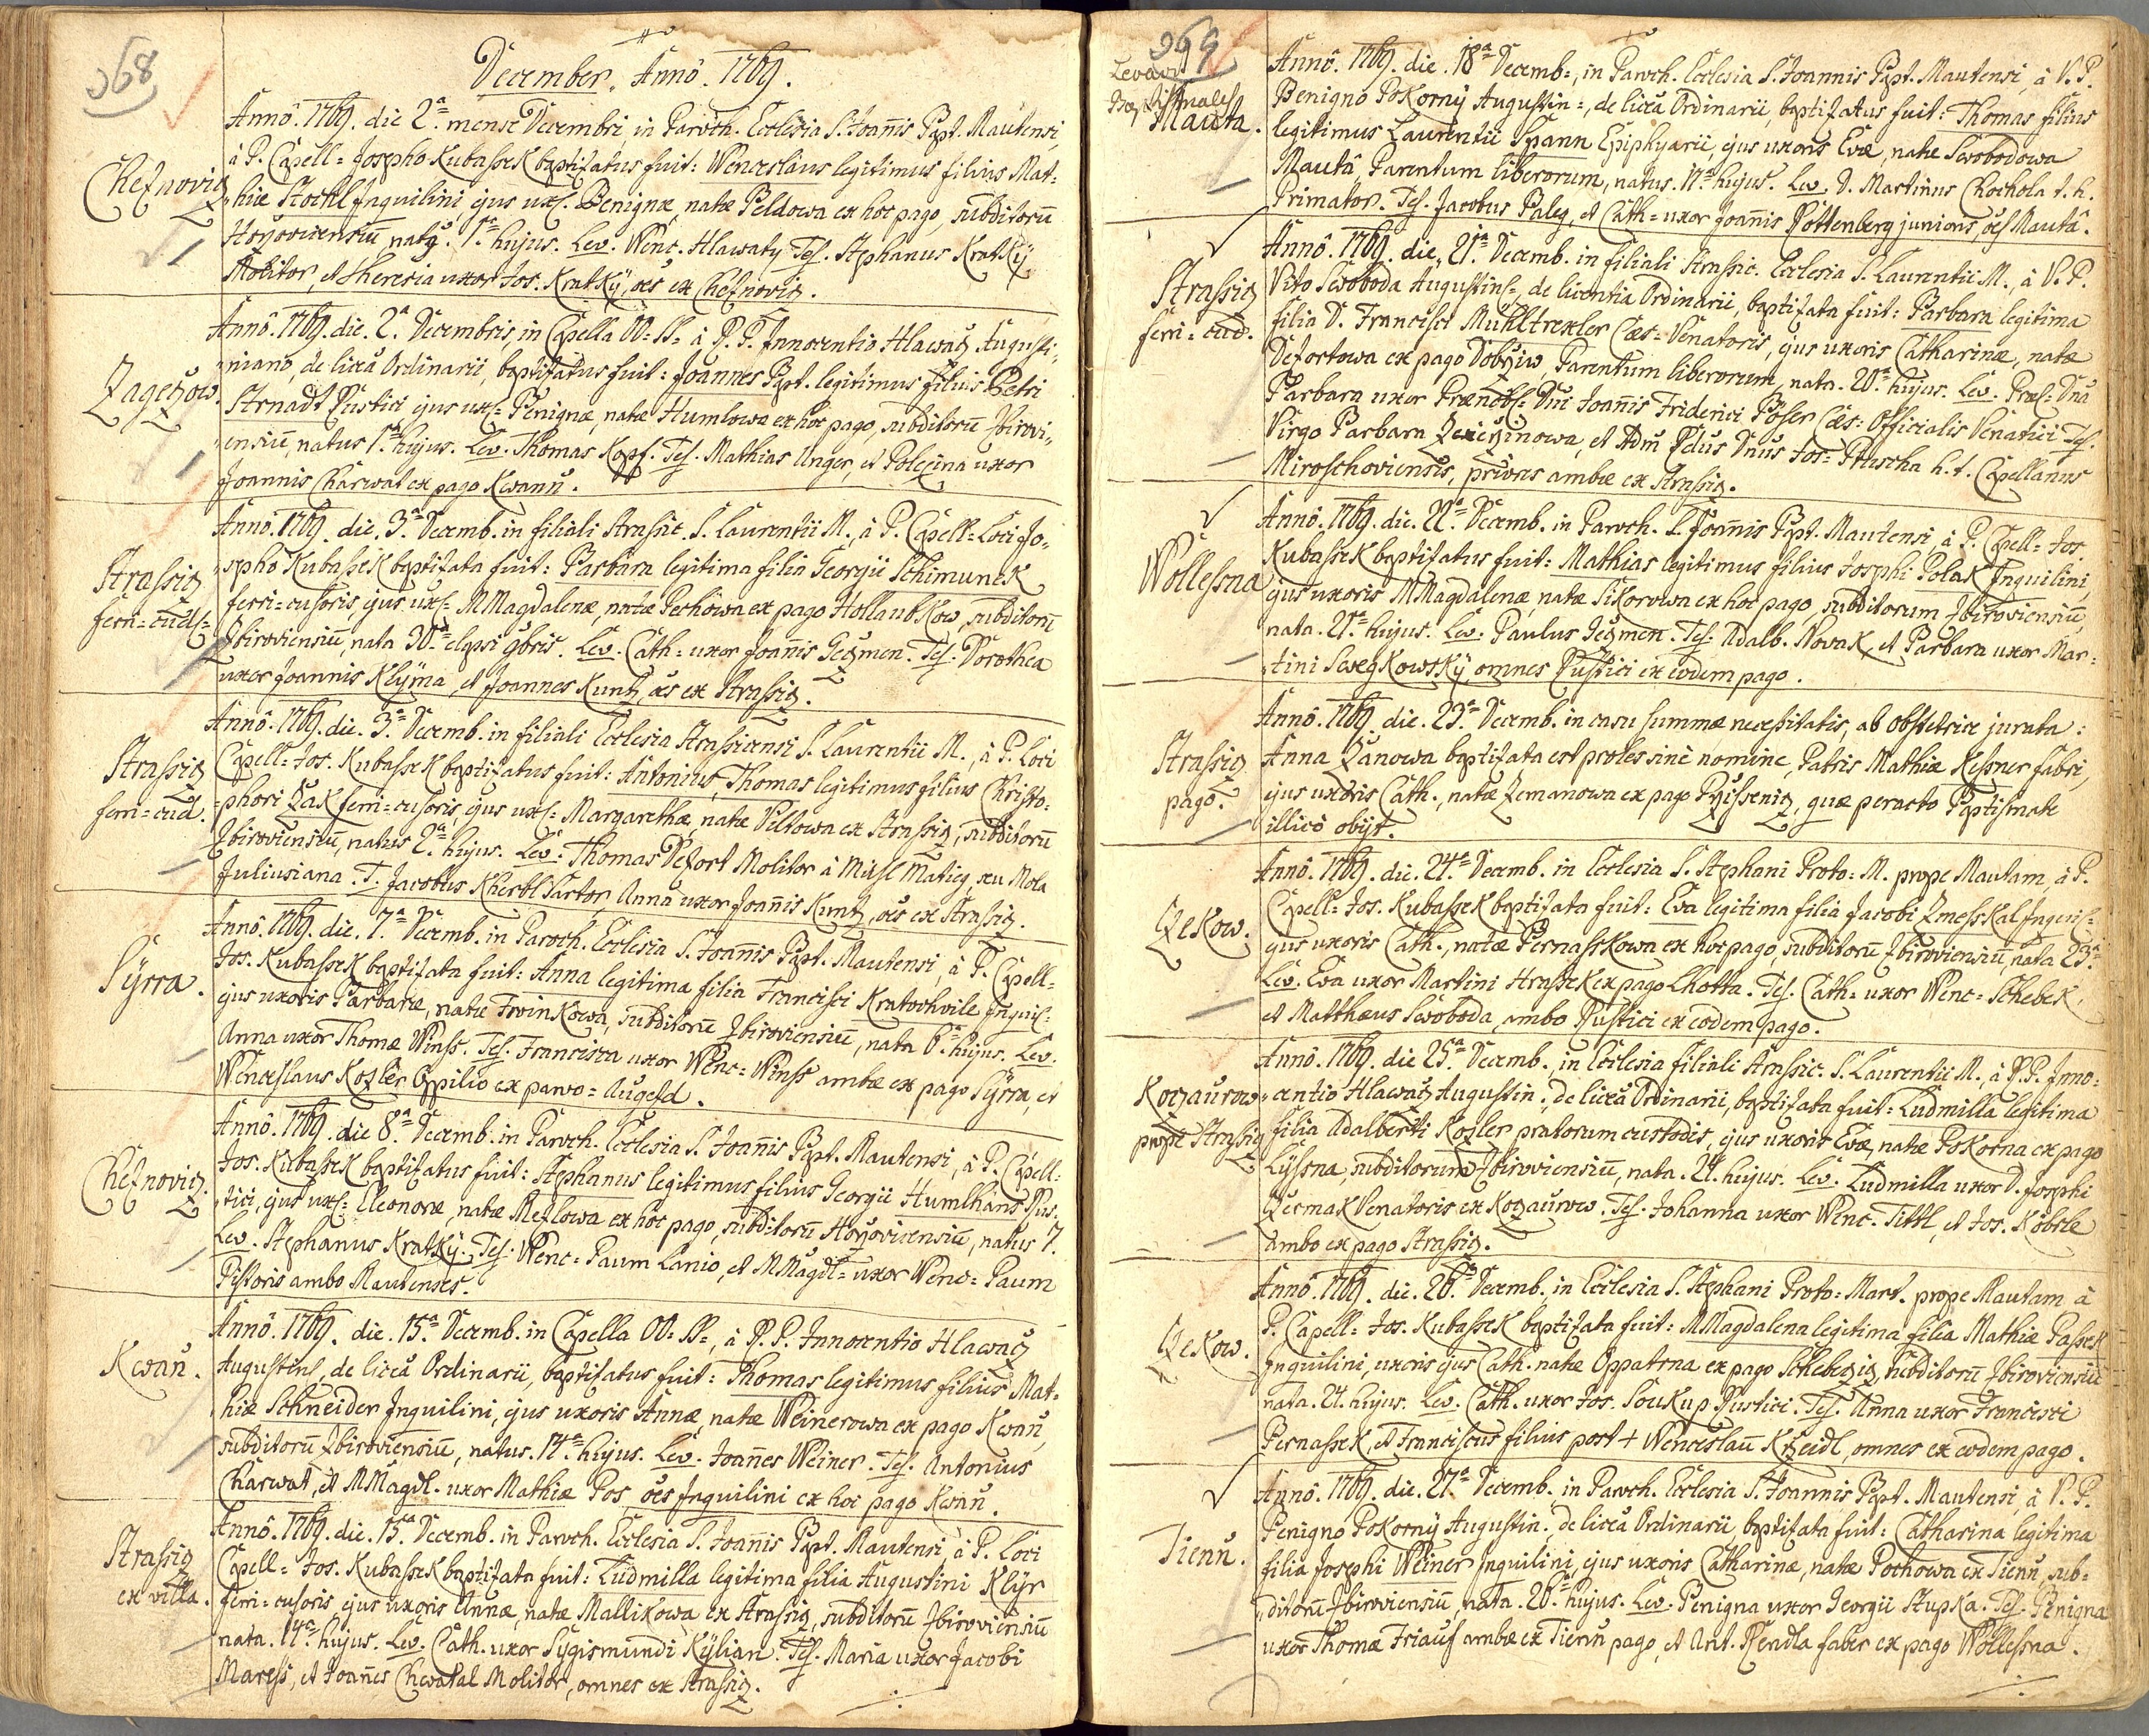 368
December. Annô. 1769.
Annô. 1769. die 2ª mense Decembri in Paroch. Ecclesia S. Joannis Bapt. Mautensi,
Chesnovicz
à P. Capell= Josepho Kubassek baptisatus fuit: Wenceslaus legitimus filius Mat=
hiæ Stochl Inquilini, ejus ux. Benignæ, natæ Peldowa ex hoc pago, subditorū
Horzovicensiū, natq. 1ª hujus. Lev. Wenc. Hlawaty. Tes. Stephanus Kratkÿ
Molitor, et Theresia uxor Jos. Kratkÿ, oēs ex Chesnovicz.
Annô. 1769. die. 2ª Decembris, in Capella OO=SS= à R. P. Innocentio Hlawacz Augusti=
Zageczow.
niano, de lic̄eâ Ordinarii, baptisatus fuit: Joannes Bapt. legitimus filius Petri
Strnadt Rustici ejus ux= Benignæ, natæ Humlowa ex hoc pago, subditorū Zbirovi=
ensiū, natus 1ª hujus. Lev. Thomas Kopf. Tes. Mathias Unger, et Polexina uxor
Joannis Charwat ex pago Kwann.
Annô. 1769. die. 3ª Decemb. in filiali Strassic. S. Laurentii M., à P. Capell= Loci Jo=
Strassicz
sepho Kubassek baptisata fuit: Barbara legitima filia Georgii Schimunek
ferri=cuds=
ferri=cusoris, ejus ux= M Magdalenæ, natæ Pechowa ex pago Hollaubkow, subditorū
Zbiroviensiū, nata 30ª elapsi 9bris. Lev. Cath= uxor Joannis Geczmen. Tes. Dorothea
uxor Joannis Klÿma, et Joannes Kuntz, oēs ex Strassicz.
Annô. 1769. die. 3ª Decemb. in filiali Ecclesia Strassicensi S. Laurentii M., à P. Loci
Strassicz
Capell= Jos. Kubassek baptisatus fuit: Antonius, Thomas legitimus filius Christo=
ferri=cud.
phori Zak ferri=cusoris, ejus ux= Margarethæ, natæ Piltowa ex Strassicz, subditorū
Zbiroviensiū, natus 2ª hujus. Lev: Thomas Defort Molitor à Mühl Maticz, seu Mola
Juliusiana. T. Jacobus Kherbl Sartor Anna uxor Joannis Kuntz, oēs ex Strassicz.
Annô. 1769. die. 7ª Decemb. in Paroch. Ecclesia S. Joannis Bapt. Mautensi, à P. Capell=
Sÿrra.
Jos. Kubassek baptisata fuit: Anna legitima filia Francisci Kratochvile Inquil:
ejus uxoris Barbaræ, natæ Trvinkowa, subditorū Zbiroviensiū, nata 6ª hujus. Lev.
Anna uxor Thomæ Winss. Tes. Francisca uxor Wenc= Winss ambæ ex pago Sÿrra, et
Wenceslaus Kozler Opilio ex parvo=Augezd.
Annô. 1769. die 8ª Decemb. in Paroch. Ecclesia S. Joannis Bapt. Mautensi, à P. Capell=
Chesnovicz.
Jos. Kubassek baptisatus fuit: Stephanus legitimus filius Georgii Humlhans Rus=
tici, ejus ux= Eleonoræ, natæ Reslowa ex hoc pago, subditorū Horzovicensiū, natus 7.
Lev. Stephanus Kratkÿ. Tes. Wenc= Paum Lanio, et M Magdl= uxor Wenc= Paum
Pistoris ambo Mautenses.
Annô. 1769. die. 15ª Decemb. in Capella OO=SS=, à R. P. Innocentio Hlawacz
Kwan̄.
Augustins, de lic̄eâ Ordinarii, baptisatus fuit: Thomas legitimus filius Mat=
hiæ Schneider Inquilini, ejus uxoris Annæ, natæ Weinerowa ex pago Kwan̄,
subditorū Zbiroviensiū, natus. 14ª hujus. Lev. Joan̄es Weiner. Tes. Antonius
Charwat, et M Magdl. uxor Mathiæ Pos, oēs Inquilini ex hoc pago Kwan̄.
Annô. 1769. die. 15ª Decemb. in Paroch. Ecclesia S. Joannis Bapt. Mautensi à P. Loci
Strassicz
Capell= Jos. Kubassek baptisata fuit: Ludmilla legitima filia Augustini Klÿr
ex villa.
ferri=cusoris ejus uxoris Annæ, natæ Mallikowa ex Strassicz, subditorū Zbiroviensiū
nata. 14ª hujus. Lev. Cath. uxor Sÿgismundi Kÿlian. Tes. Maria uxor Jacobi
Maress, et Joan̄es Chwatal Molitor, omnes ex Strassicz.
369
Levavit
Baptismales
Annô. 1769. die. 18ª Decemb=, in Paroch. Ecclesia S. Joannis Bapt. Mautensi, à V. P.
Mauta.
Benigno Pokornÿ Augustin=, de lic̄eâ Ordinarii baptisatus fuit: Thomas filius
legitimus Laurentii Spann Ephipiarii, ejus uxoris Evæ, natæ Swobodowa
Mautâ Parentum liberorum, natus. 17ª hujus. Lev. D. Martinus Chochola t. h.
Primator. Tes. Jacobus Palez, et Cath= uxor Joannis Rottenberg junioris, oēs Mautâ.
Annô. 1769. die. 21ª Decemb. in filiali Strassic. Ecclesia S. Laurentii M., à V. P.
Strassicz
Vito Swoboda Augustins=, de licentia Ordinarii, baptisata fuit: Barbara legitima
ferri=cud.
filia D. Francisci Mühltrexler Cæs= Venatoris, ejus uxoris Catharinæ, natæ
Defortowa ex pago Dobrziw, Parentum liberorum, nata. 20ª hujus. Lev. Præ= Dna
Barbara uxor Prænobl= Dni Joannis Friderici Böser Cæs: Officialis Venatici Tes.
Virgo Barbara Zeiczinowa, et Adm Rdus Dnus Jos= Ptascha h. t. Capellanus
Miroschoviensis, prioris ambæ ex Strassicz.
Annô. 1769. die. 22ª Decemb. in Paroch. S. Joannis Bapt. Mautensi, à P. Capell= Jos.
Wollessna
Kubassek baptisatus fuit: Mathias legitimus filius Josephi Polak Inquilini,
ejus uxoris M Magdalenæ, natæ Sikorowa ex hoc pago, subditorum Zbiroviensiū,
nata. 21ª hujus. Lev: Paulus Geczmen. Tes. Adalb. Novak, et Barbara uxor Mar=
tini Sweykowskÿ omnes Rustici ex eodem pago.
Annô. 1769. die. 23ª Decemb. in casu summæ necessitatis, ab obstetrice jurata:
Strassicz
Anna Zanowa baptisata est proles sine nomine, Patris Mathiæ Kessner fabri,
pago.
ejus uxoris Cath., natæ Zemanowa ex pago Przissenicz, quæ peracto Baptismate
illicò obijt.
Annô. 1769. die. 24ª Decemb. in Ecclesia S. Stephani Proto=M. prope Mautam, à P.
Czekow.
Capell= Jos. Kubassek baptisata fuit: Eva legitima filia Jacobi Zmesskal Inquil=
ejus uxoris Cath., natæ Bernasskowa ex hoc pago, subditorū Zbiroviensiū, nata 23ª
Lev. Eva uxor Martini Hrassek ex pago Lhotta. Tes. Cath= uxor Wenc= Schebek,
et Matthæus Swoboda, ambo Rustici ex eodem pago.
Annô. 1769. die 25ª Decemb., in Ecclesia filiali Strassic. S. Laurentii M., à R. P. Inno=
Kotzaurow
centio Hlawacz Augustin:, de lic̄eâ Ordinarii, baptisata fuit: Ludmilla legitima
prope Strassicz
filia Adalberti Kozler pratorum custodis, ejus uxoris Evæ, natæ Pokorna ex pago
Lÿssna, subditorum Zbiroviensiū, nata. 24. hujus. Lev. Ludmilla uxor D. Josephi
Czermak Venatoris ex Kotzaurow. Tes. Johanna uxor Wenc. Tittl, et Jos. Köberle
ambo ex pago Strassicz.
Annô. 1769. die. 26ª Decemb. in Ecclesia S. Stephani Proto=Mart. prope Mautam à
Czekow.
P. Capell= Jos. Kubassek baptisata fuit: M Magdalena legitima filia Mathiæ Passek
Inquilini, uxoris ejus Cath. natæ Oppatrna ex pago Schebeczicz, subditorū Zbiroviensiū
nata. 24. hujus. Lev. Cath. uxor Jos. Soukup Rustici. Tes. Anna uxor Francisci
Bernassek, et Franciscus filius post + Wenceslaū Kreidl, omnes ex eodem pago.
Annô. 1769. die. 27ª Decemb. in Paroch. Ecclesia S. Joannis Bapt. Mautensi, à V. P.
Tienn.
Benigno Pokornÿ Augustin. de lic̄eâ Ordinarii, baptisata fuit: Catharina legitima
filia Josephi Weiner Inquilini, ejus uxoris Catharinæ, natæ Pochowa ex Tienn, sub=
ditorū Zbiroviensiū, nata. 26ª hujus. Lev. Benigna uxor Georgii Stupka. Tes. Benigna
uxor Thomæ Friauf ambæ ex Tienn pago, et Ant. Rendla faber ex pago Wollessna.